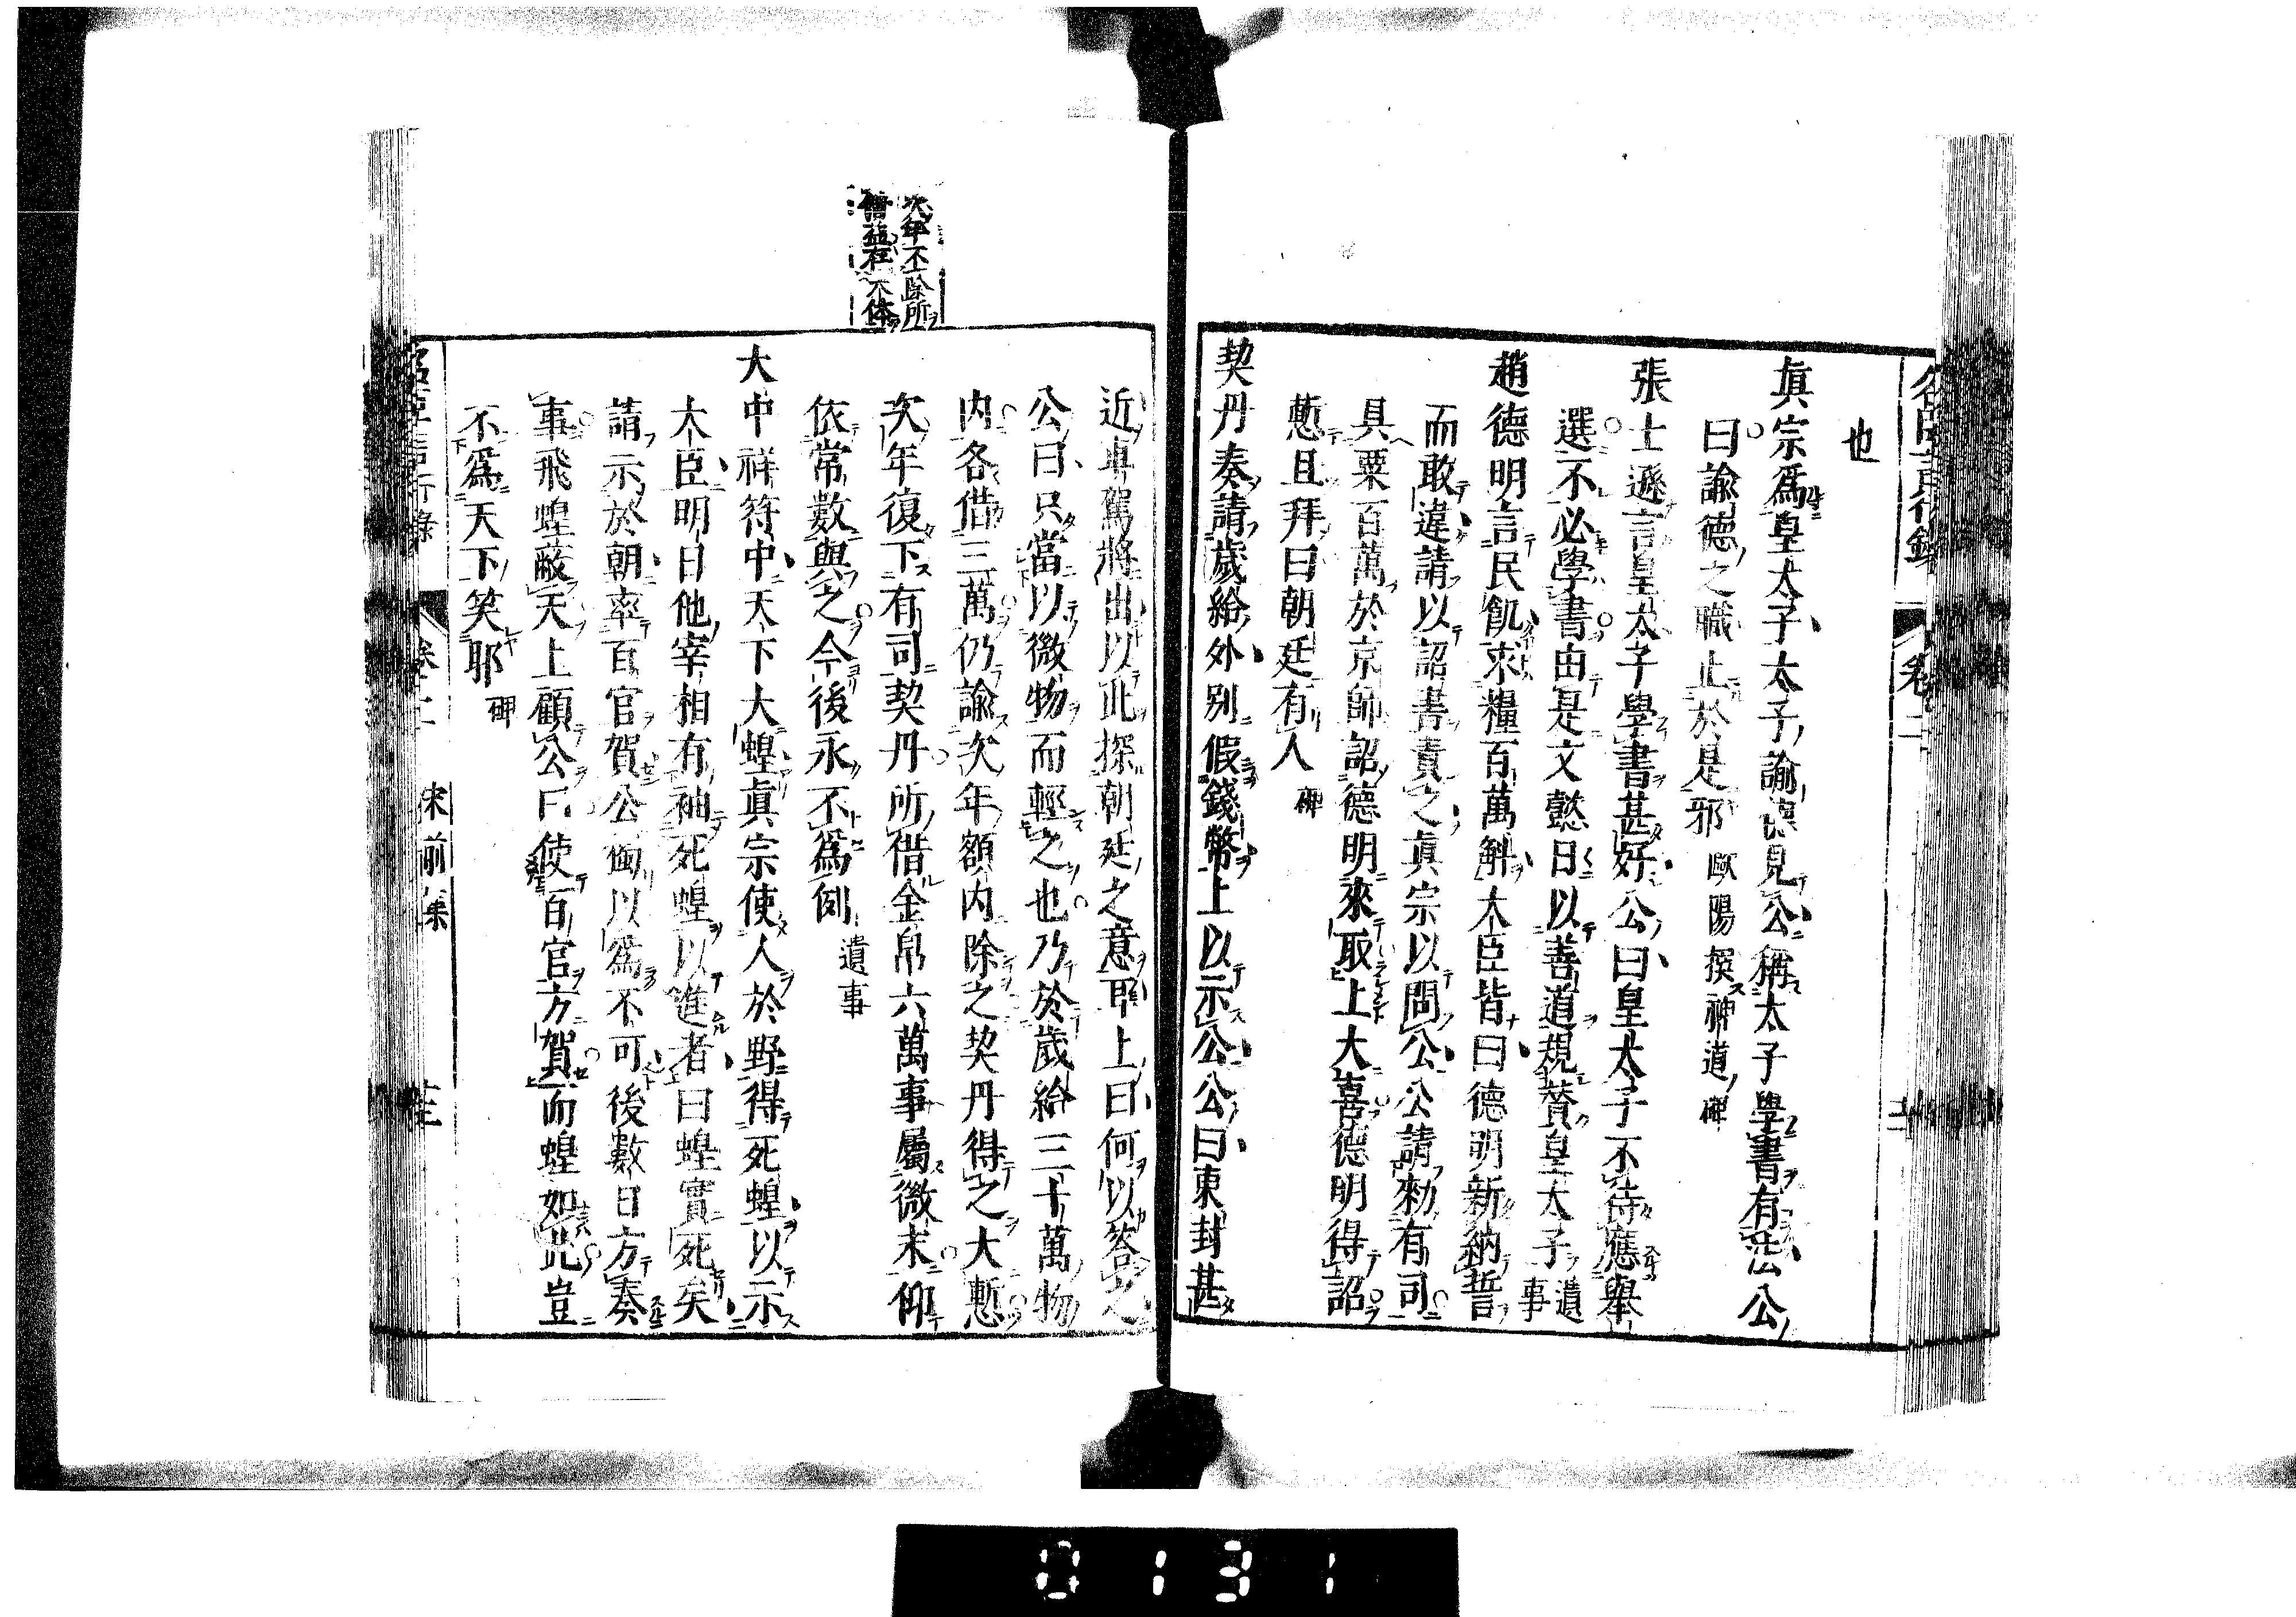 也
眞宗爲皇太子太子諭德見公稱太子學書有法公
曰諭德之職止於是邪 歐陽撰神道碑
張士遜言皇太子學書甚好公曰皇太子不待應舉
選不必學書由是文懿日以善道規賛皇太子 遺事
趙德明言民飢求糧百萬斛大臣皆曰德明新納誓
而敢違請以詔書責之眞宗以問公公請勑有司
具粟百萬於京師詔德明來取上大喜德明得詔
慙且拜曰朝廷有人 碑
契丹奏請歲給外別假錢幣上以示公公曰東封甚
近車駕將出以此探朝廷之意耶上曰何以答之
公曰只當以微物而輕之也乃於歲給三十萬物
内各借三萬仍諭次年額内除之契丹得之大慙
次年復下有司契丹所借金帛六萬事屬微末仰
依常數與之今後永不爲例 遺事
大中祥符中天下大蝗眞宗使人於野得死蝗以示
大臣明日他宰相有袖死蝗以進者曰蝗實死矣
請示於朝率百官賀公獨以爲不可後數日方奏
事飛蝗蔽天上顧公曰使百官方賀而蝗如此豈
不爲天下笑耶 碑
次年不除所
卷二
宋前集
0131